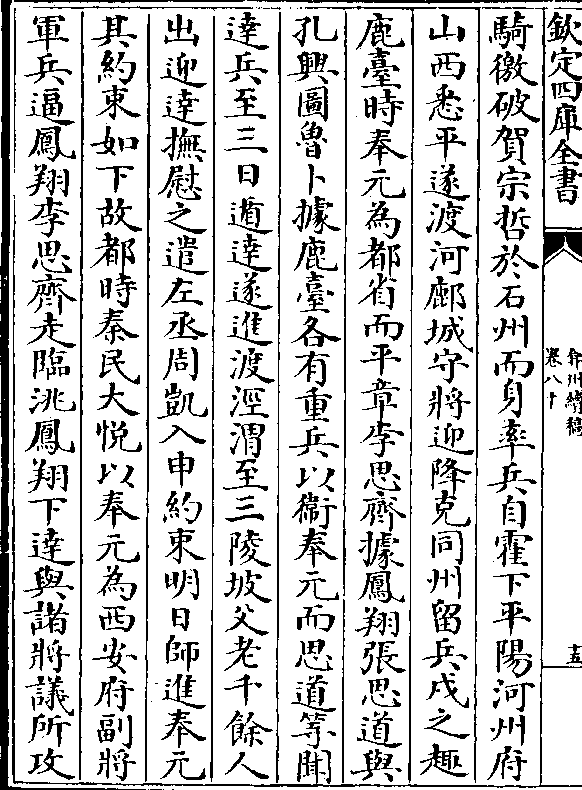 欽定四庫全書
弇州續稿
卷八十
十五
騎徼破賀宗哲於石州而身率兵自霍下平陽河州府
山西悉平遂渡河鄜城守將迎降克同州留兵戍之趣
鹿臺時奉元為都省而平章李思齊據鳳翔張思道與
孔興圖魯卜據鹿臺各有重兵以衞奉元而思道等聞
達兵至三日遁達遂進渡涇渭至三陵坡父老千餘人
出迎達撫慰之遣左丞周凱入申約束明日師進奉元
其約束如下故都時秦民大悦以奉元為西安府副將
軍兵逼鳳翔李思齊走臨洮鳳翔下達與諸將議所攻